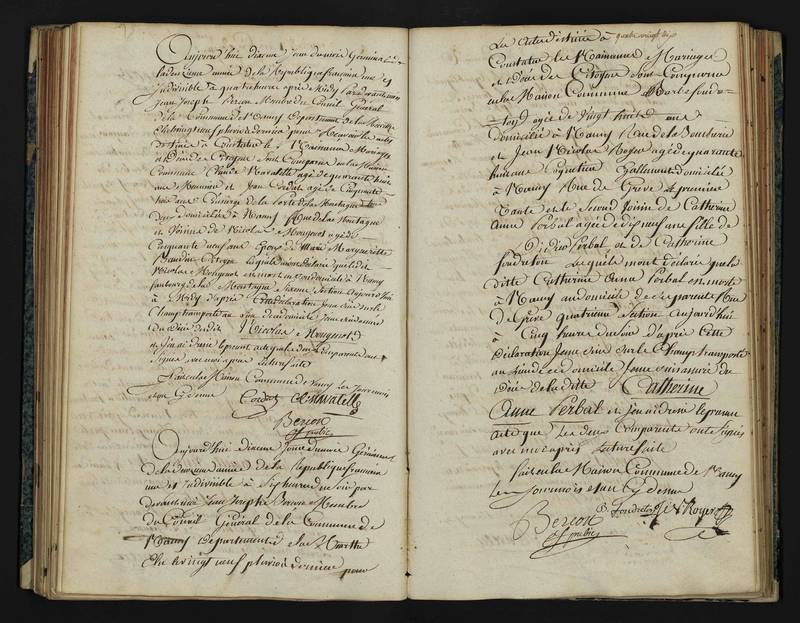 Aujourd'hui dixieme jour du mois Germinal
la deuxieme année de la République francaise une et
indivisible a quatre heures apres Midy pardevant moi
Jean Joseph Berson Membre du Conseil Général
de la Commune de Nancy Département de la Meurthe
Elu le vingt neuf pluviose dernier pour recevoir les actes
destinés a Constater les Naissances Mariages
et Décès des Citoyens Sont Comparus en la Maison
Commune Claude agé de quarante huit
ans et Jean Cordat agé de Cinquante
trois ans Concierge de la Porte de la Montagne
deux domiciliés à Nancy Rue de la Montagne
et Voisins de Nicolas Mougenot agé de
Cinquante neuf ans Epoux de Marie Marguerite
lesquels m'ont déclaré que ledit
Nicolas Mougenot est mort en son domicile à Nancy
faubourg de la Montagne Section aujourd'hui
à Midy d'après Cette déclaration Je me suis sur le
Champ transporté au domicile Je me suis assuré
du Décès dudit Nicolas Mougenot
et J'en ai dressé le présent acte que les deux Comparants ont
Signés avec moi apres lecture faite
Fait en la Maison Commune de Nancy Les Jour mois
et an Cy dessus
Cordat
Berson
off public
Aujourd'hui dixieme Jour du mois Germinal
de la deuxieme année de la République francaise
une et indivisible à Sept heures du soir par
devant moi Jean Joseph Berson Membre
du Conseil Général de la Commune de
Nancy Département de la Meurthe
Elu le vingt neuf pluviose dernier pour
Les actes destinés à
Constater les Naissances Mariages
et Décès des Citoyens Sont Comparus
en la Maison Commune Barbe
agée de vingt huit ans
domiciliée à Nancy Rue de la
et Jean Nicolas Royer agé de quarante
huit ans Egallement domicilié
à Nancy Rue de Grève première
Tante et le Second Voisin de Catherine
Anne Perbal agée de dix neuf ans fille de
Didier Perbal et de Catherine
lesquels m'ont déclaré que la
dite Catherine Anne Perbal est morte
à Nancy au domicile de ses parents Rue
de Grève quatrieme Section aujourd'hui
à Cinq heures du soir d'après Cette
déclaration Je me suis sur le Champ transporté
au domicile Je me suis assuré du
Décès de la dite Catherine
Anne Perbal et J'en ai dressé le présent
acte que Les deux Comparants ont Signés
avec moi apres lecture faite
Fait en la Maison Commune de Nancy
Les Jour mois et an Cy dessus
Berson
off public
Royer